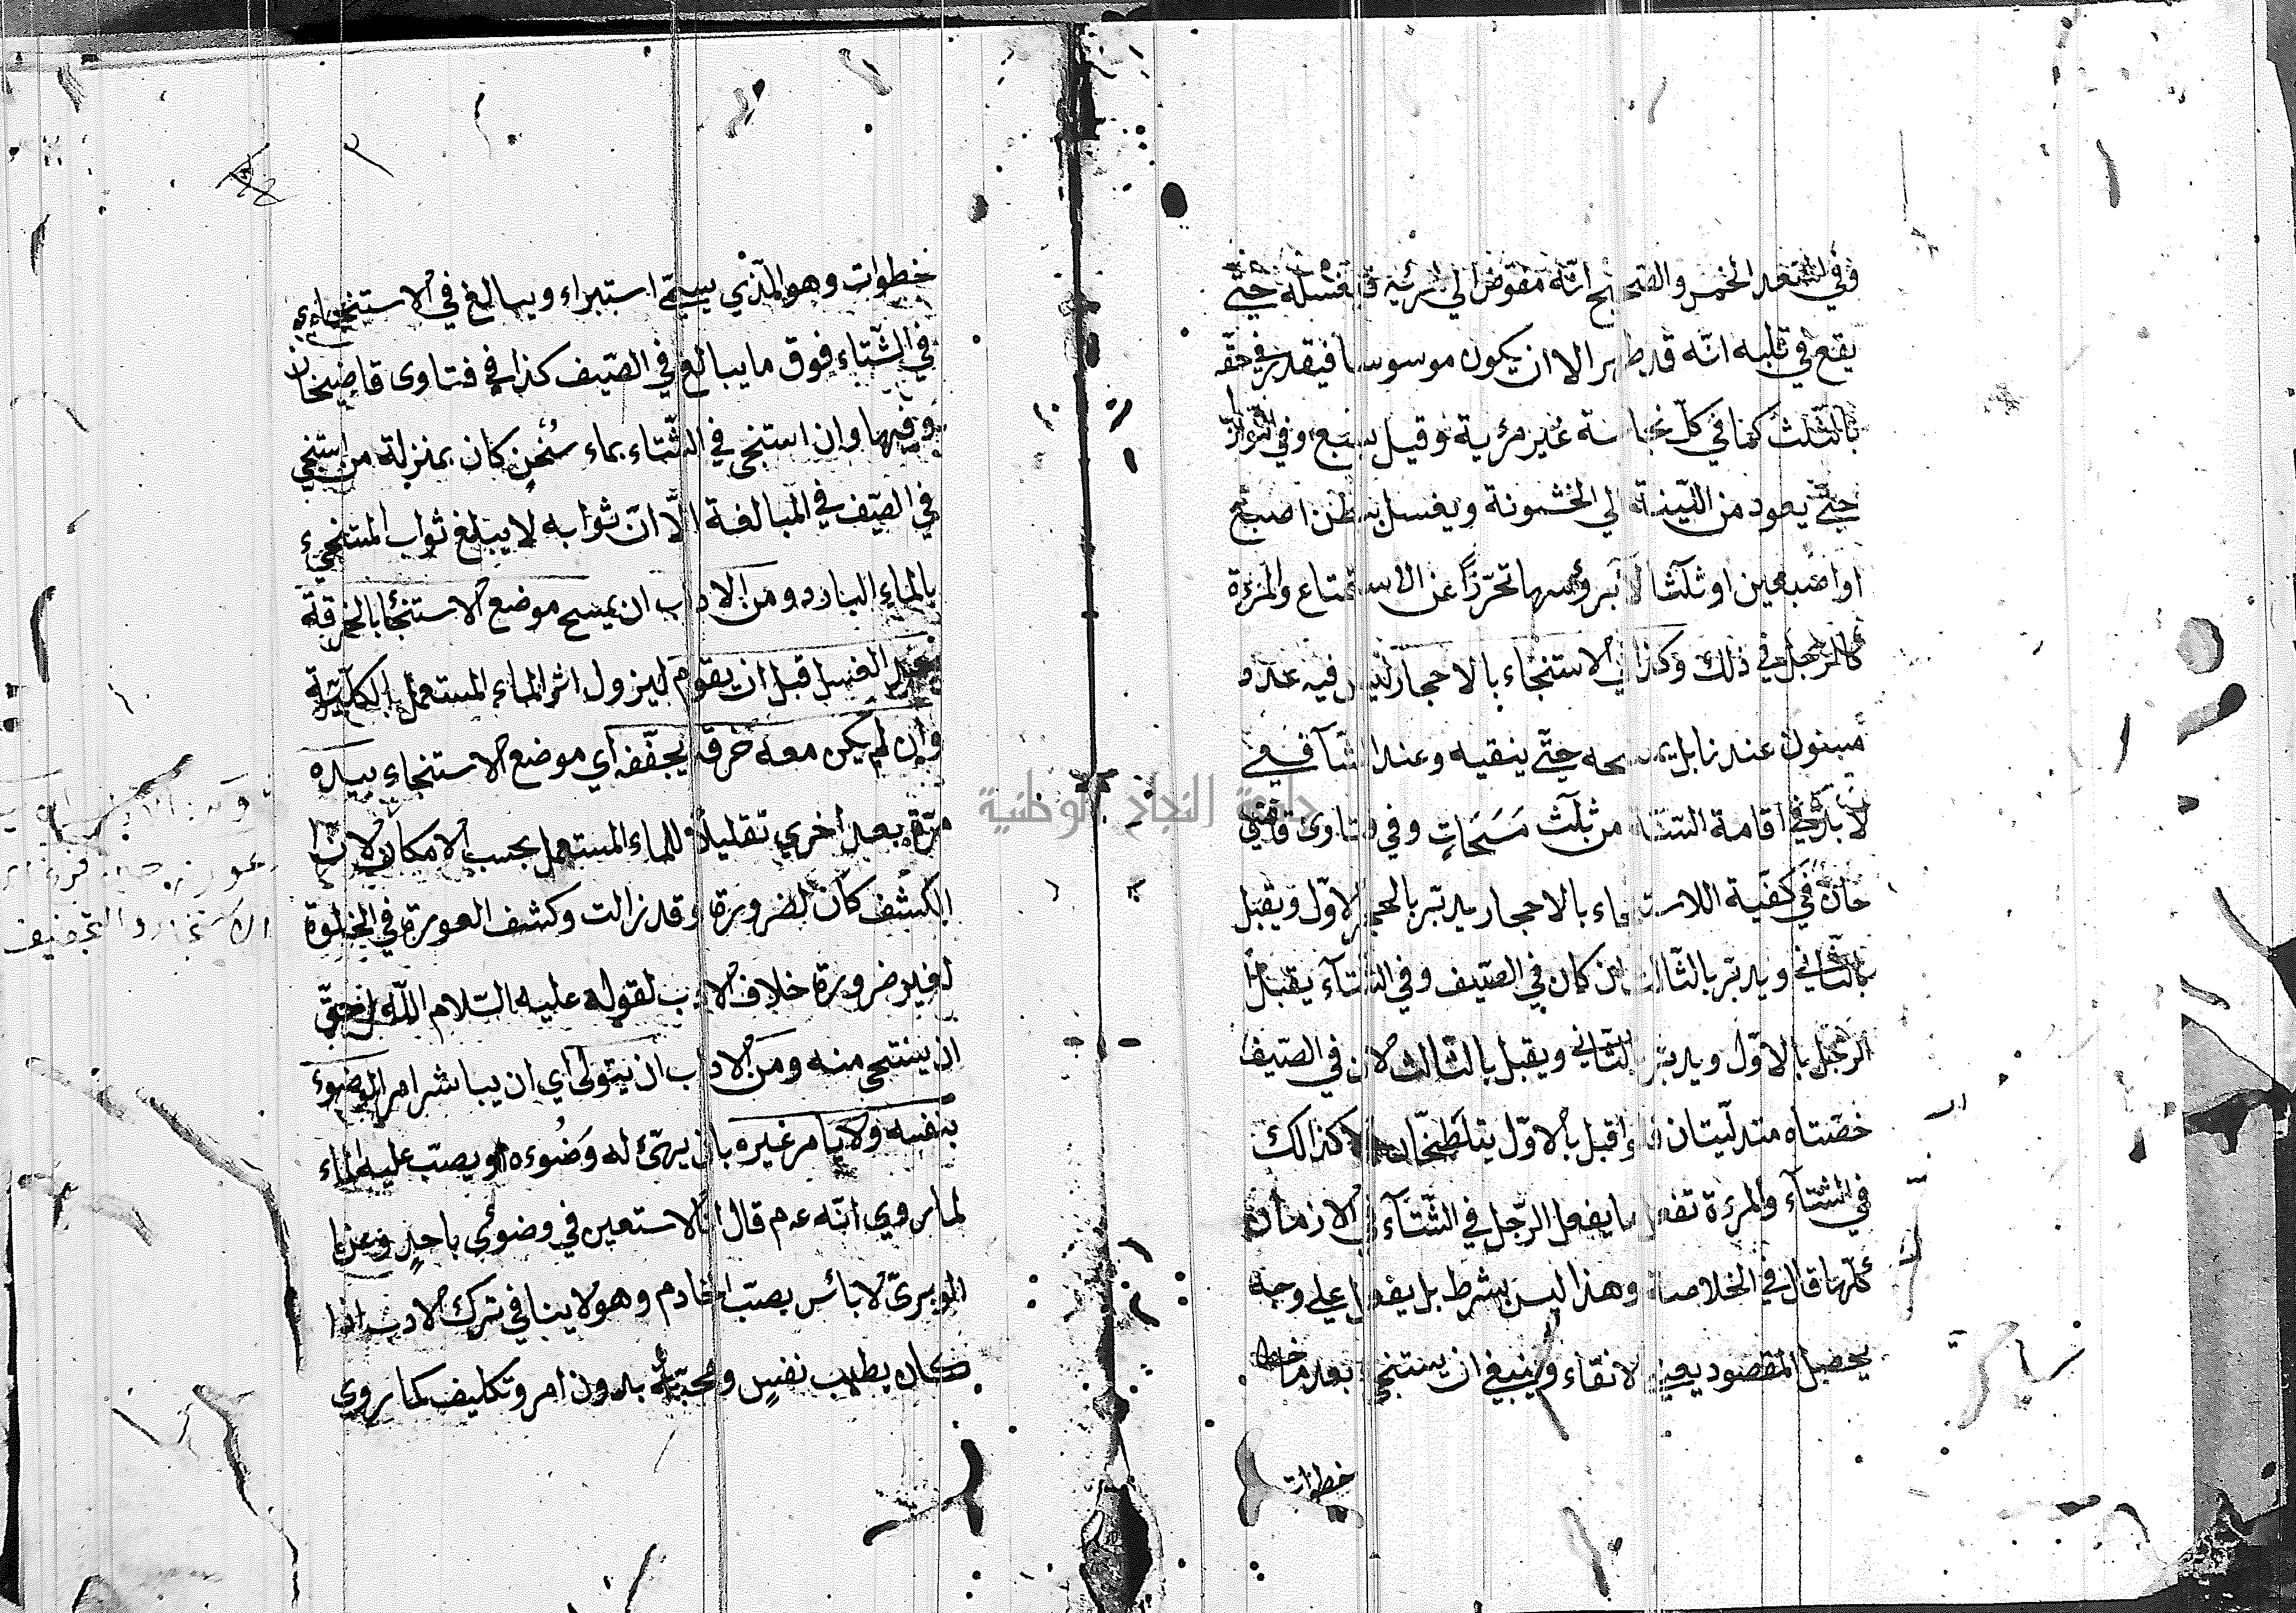 وفي المقعد الخمس والصحيح انّه مفوّض الي رأيه فيغسله حتّي
يقع في قلبه انّه قد طهر الا ان يكون موسوسا فيقدر في حقّه
بالثّلث كما في كلّ نجاسة غير مرئية وقيل بسبع وفي النّوازل
حتّي يعود من اللّينة الي الخشونة ويغسل ببطن اصبع
او اصبعين او ثلثا لا برؤسها تحرّزًا عن الاستمتاع والمرءة
كالرّجل في ذلك وكذا في الاستنجاء بالاحجار ليس فيه عدد
مسنون عندنا بل يمسحه حتّي ينقيه وعند الشّآفعي
لا بدّ في اقامة السّنّة من ثلٰث مَسَحَاتٍ وفي فتاوى قاضي
خان في كفّية اللاستنجاء بالاحجار يدبّر بالحجر الاوّل ويقبل
بالثّاني ويدبّر بالثّالث ان كان في الصّيف وفي الشّتآء يقبل
الرّجل بالاوّل ويدبّر بالثّاني ويقبل بالثّالث لان في الصّيف
خصّتاه متدلّيتان فلو اقبل بالاوّل يتلطّخان ولا كذالك
في الشّتآء والمرءة تفعل ما يفعل الرّجل في الشّتآء في الازمان
كلّها قال في الخلاصة وهذا ليس بشرط بل يفعل علي وجه
يحصل المقصود يعني الانقاء وينبغي ان يستنجي بعد ما خطا
خطوات
خطوات وهو الّذي يسمّي استبراء ويبالغ في الاستنجاء
في الشّتاء فوق ما يبالغ في الصّيف كذا في فتاوى قاضيخان
وفيها وان استنجى في الشّتاء بماء سُخْنٍ كان بمنزلة من استنجي
في الصّيف في المبالغة الّا انّ ثوابه لا يبلغ ثواب المستنجيء
بالماء البارد ومن الاداب ان يمسح موضع الاستنجا بالخرقة
بعد الغسل قبل ان يقوم ليزول اثر الماء المستعمل بالكلّيّة
وان لم يكن معه خرقة يجفّفه اي موضع الاستنجاء بيده
مرّة بعد اخري تقليلاً للماء المستعمل بحسب الامكان لانّ
الكشف كان لضرورة وقد زالت وكشف العورة في الخلوة
لغير ضرورة خلاف الادب لقوله عليه السّلام اللّه احقّ
ان يستحي منه ومن الاداب ان يتولّى اي ان يباشر امر الوضوء
بنفسه ولا يامر غيره بان يهيّء له وَضُوءه او يصبّ عليه الماء
لما روي انّه ع م قال انّا لا استعين في وضوئي باحدٍ وعن
الوبريّ لا بائس بصبّ الخادم وهو لا ينافي ترك الادب اذا
كان بطيب نفسٍ ومحبّةٍ بدون امر وتكليف كما روي
جامعة النجاح الوطنية